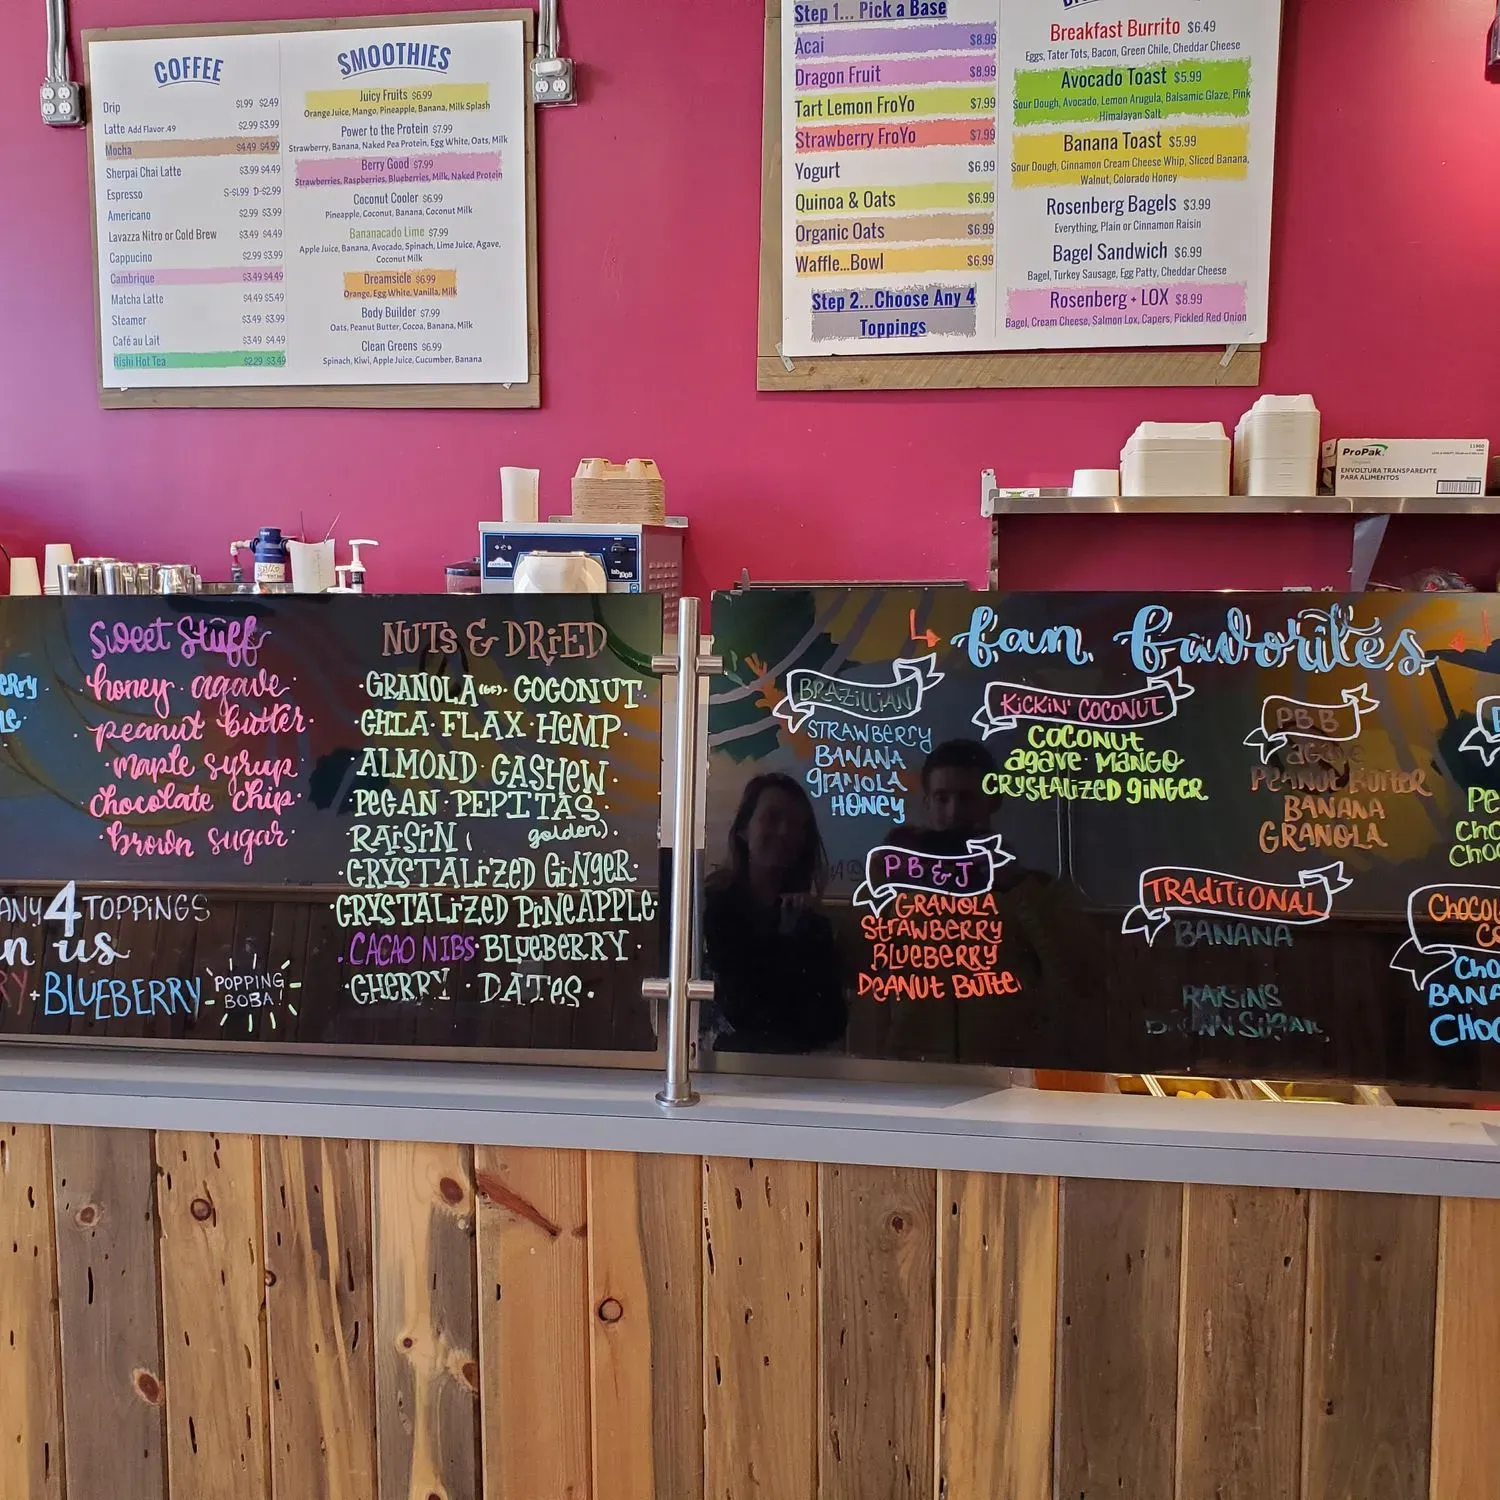 COFFEE
Drip $1.99 $2.49
Latte Add Flavor .49 $2.99 $3.99
Mocha $4.49 $4.99
Sherpai Chai Latte $3.99 $4.49
Espresso S-$1.99 D-$2.99
Americano $2.99 $3.99
Lavazza Nitro or Cold Brew $3.49 $4.49
Cappucino $2.99 $3.99
Cambrique $3.49 $4.49
Matcha Latte $4.49 $5.49
Steamer $3.49 $3.99
Café au Lait $3.49 $4.49
Rishi Hot Tea $2.29 $3.49
SMOOTHIES
Juicy Fruits $6.99
Orange Juice, Mango, Pineapple, Banana, Milk Splash
Power to the Protein $7.99
Strawberry, Banana, Naked Pea Protein, Egg White, Oats, Milk
Berry Good $7.99
Strawberries, Raspberries, Blueberries, Milk, Naked Protein
Coconut Cooler $6.99
Pineapple, Coconut, Banana, Coconut Milk
Bananacado Lime $7.99
Apple Juice, Banana, Avocado, Spinach, Lime Juice, Agave,
Coconut Milk
Dreamsicle $6.99
Orange, Egg White, Vanilla, Milk
Body Builder $7.99
Oats, Peanut Butter, Cocoa, Banana, Milk
Clean Greens $6.99
Spinach, Kiwi, Apple Juice, Cucumber, Banana
Step 1... Pick a Base
Acai $8.99
Dragon Fruit $8.99
Tart Lemon FroYo $7.99
Strawberry FroYo $7.99
Yogurt $6.99
Quinoa & Oats $6.99
Organic Oats $6.99
Waffle...Bowl $6.99
Step 2...Choose Any 4
Toppings
Breakfast Burrito $6.49
Eggs, Tater Tots, Bacon, Green Chile, Cheddar Cheese
Avocado Toast $5.99
Sour Dough, Avocado, Lemon Arugula, Balsamic Glaze, Pink
Himalayan Salt
Banana Toast $5.99
Sour Dough, Cinnamon Cream Cheese Whip, Sliced Banana,
Walnut, Colorado Honey
Rosenberg Bagels $3.99
Everything, Plain or Cinnamon Raisin
Bagel Sandwich $6.99
Bagel, Turkey Sausage, Egg Patty, Cheddar Cheese
Rosenberg + LOX $8.99
Bagel, Cream Cheese, Salmon Lox, Capers, Pickled Red Onion
ProPak
11960
ENVOLTURA TRANSPARENTE
PARA ALIMENTOS
Sweet Stuff
honey · agave ·
peanut butter ·
· maple syrup ·
chocolate chip ·
· brown sugar ·
ANY 4 TOPPINGS
us
· BLUEBERRY -
POPPING
BOBA!
NUTS & DRiED
· GRANOLA (GF) · COCONUT ·
· CHIA · FLAX · HEMP ·
· ALMOND · CASHEW ·
· PECAN · PEPITAS ·
· RAiSiN ( golden) ·
· CRYSTALiZED GiNGER ·
· CRYSTALiZED PiNEAPPLE ·
· CACAO NIBS · BLUEBERRY ·
· CHERRY · DATES ·
fan favorites
BRAZILLIAN
STRAWBERRY
BANANA
gRANOLA
HONEY
KiCKiN' COCONUT
COCONUT
agave · MANGO
CRYSTALiZED giNGER
PBB
agave
PEANUT BUTTER
BANANA
GRANOLA
PB & J
GRANOLA
STRAWBERRY
BLUEBERRY
PEANUT BUTTE
TRADiTiONAL
BANANA
RAISINS
BROWN SUGAR